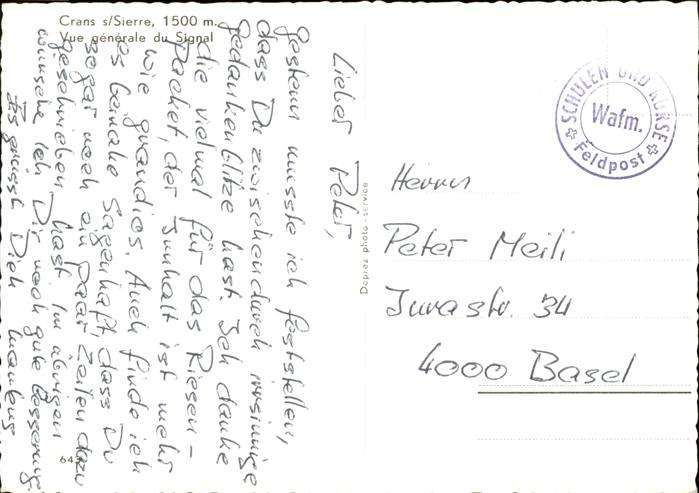 Crans s/Sierre, 1500 m.
Vue générale du Signal
Lieber Peter,
gestern musste ich feststellen,
dass Du zwischendurch irrsinnige
gedankenblitze hast. Ich danke
die vielmal für das Riesen-
Packet, der Innhalt ist mehr
wie grandios. Auch finde ich
es beinahe Sagenhaft, dass Du
sogar noch ein paar Zeilen dazu
geschrieben hast. Im übrigen
wünsche ich Dir noch gute Besserung
Es grüsst Dich
Deprez photo-service
SCHULEN UND KURSE
Wafm.
Feldpost
Herrn
Peter Meili
Jurastr. 34
4000 Basel